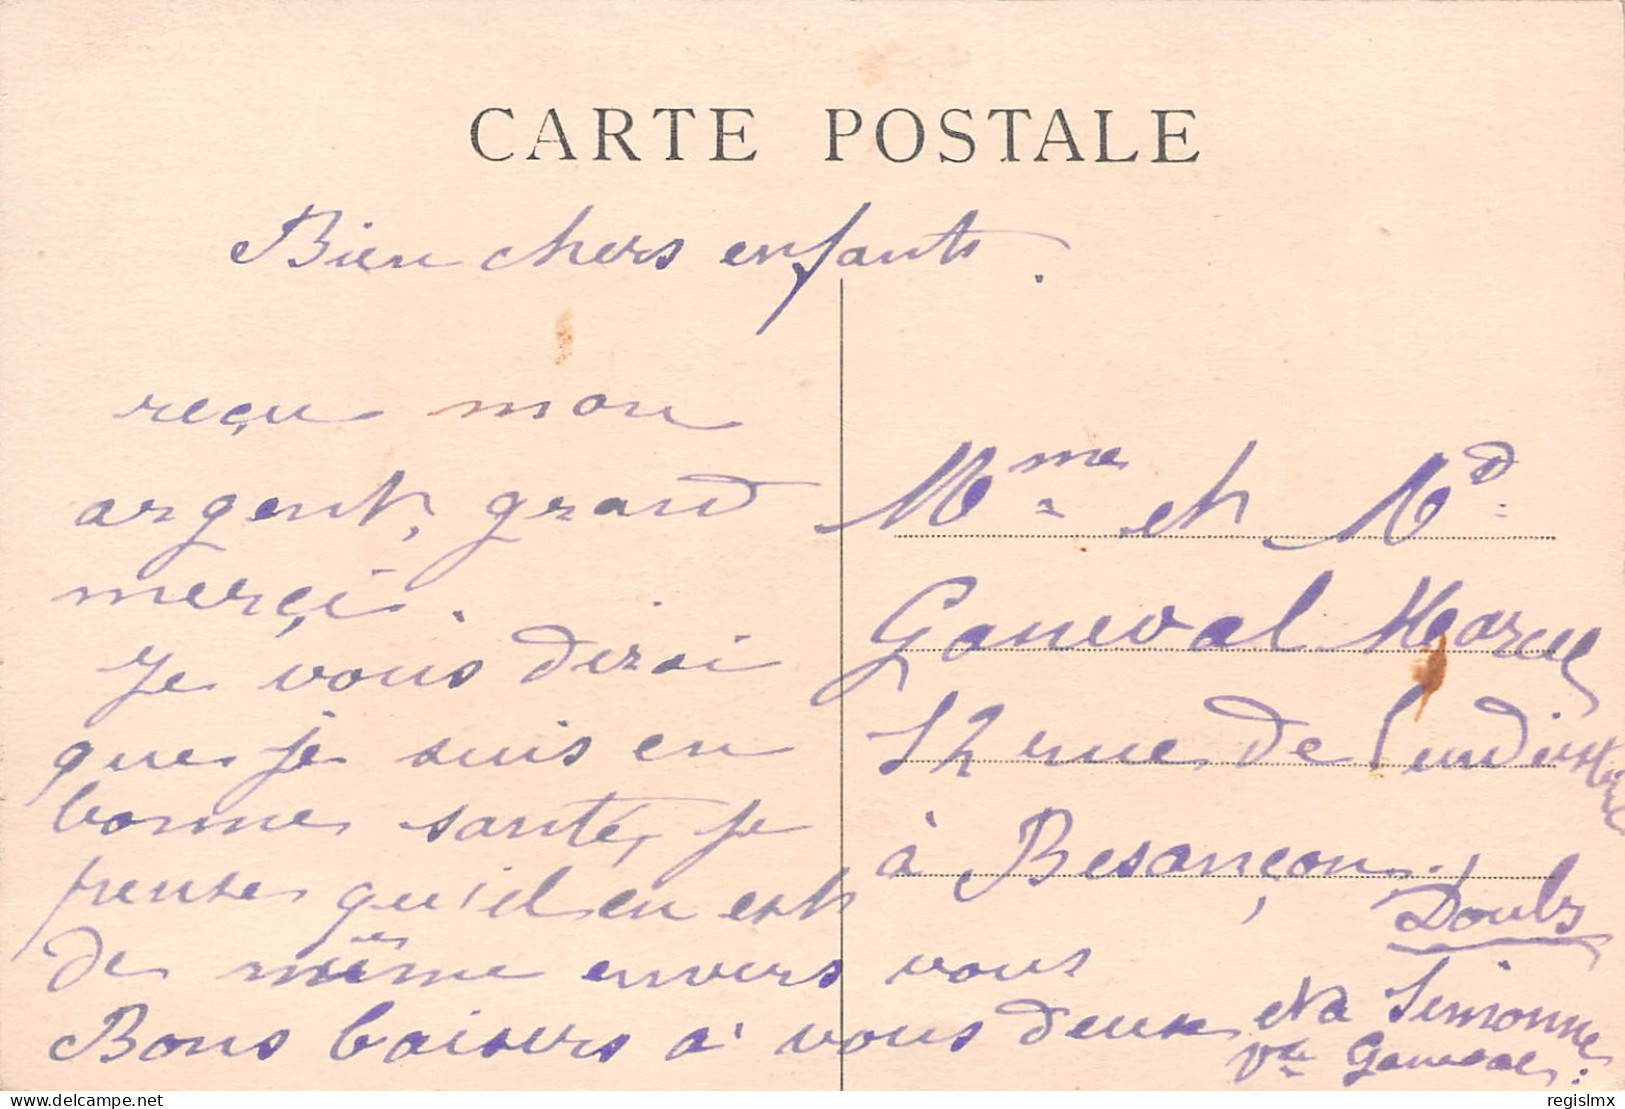 CARTE POSTALE
Bien chers enfants.
reçu mon
argent, grand
merçi.
Je vous dirai
que je suis en
bonne santé, je
pense qu'il en est
de même envers vous
Bons baisers à vous deux et à Simonne
Vve Ganeval
Mme et Md
Ganeval Marcel
12 rue de l'industrie
à Besançon
Doubs
delcampe.net
regislmx